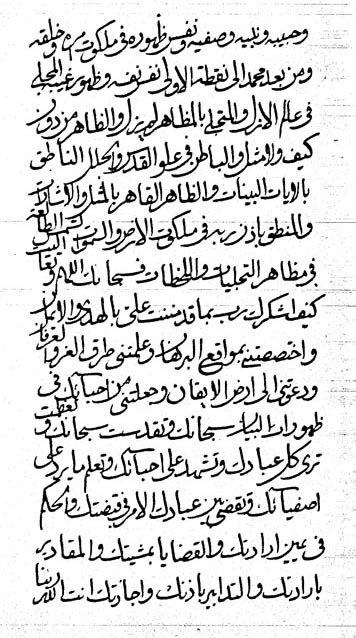 وحبيبه ونبيه وصفيه ونفس ظهوره في ملكوت وخلقه
ومن بعد محمد الى نقطة الاولى نفس وظهور غيب
في عالم الازل والمتجلي بالمظاهر لم يزل والظاهر من دون
كيف ولا مثل والباطن في علو القدس والجلال الناطق
بالايات البينات والظاهر القاهر بالمثل والاشارات
والمنطق باذن ربه في ملكوت الارض والسموات الطالعة
في مظاهر التجليات واللحظات فسبحانك اللهم
كيف اشكرك رب بما قد مننت على بالهدى والايمان
واختصصتني بمواقع البرهان وعلمتني طرق العرفان
ودعوتني الى ارض الايقان وجعلتني من احبائك في
ظهورات البيان سبحانك وتقدست سبحانك وتعظمت
ترى كل عبادك وتشهد على احبائك وتعلم ما يرد على
اصفيائك وتقضي بين عبادك الامر في قبضتك والحكم
في يمين ارادتك والقضايا بمشيتك والمقادير
بارادتك والتدابير باذنك واجازتك انت الله ربنا